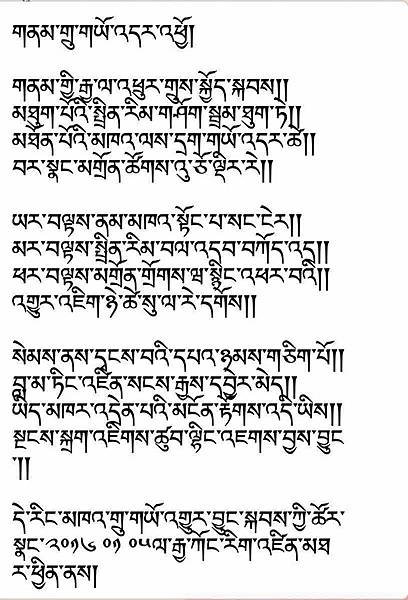 གནམ་གྲུ་གཡོ་འདར་འཕྱོ།
གནམ་གྱི་རྒྱ་ལ་འཕུར་གྲུས་སྐྱོད་སྐབས།།
མཐུག་པོའི་སྤྲིན་རིམ་གཤོག་སྒྲམ་ཐུག་ཏེ།།
མཐོན་པོའི་མཁའ་ལས་དྲག་གཡོ་འདར་ཚེ།།
བར་སྣང་མགྲོན་ཚོགས་འུ་ཅོ་ལྡིར་རེ།།
ཡར་བལྟས་ནམ་མཁའ་སྟོང་པ་སང་ངེར།།
མར་བལྟས་སྤྲིན་རིམ་བལ་འདབ་བཀོད་འདྲ།།
ཕར་བལྟས་མགྲོན་གྲོགས་ཝ་སྙིང་འཕར་བའི།།
འགྱུར་འཇིག་ཉེ་ཚེ་སུ་ལ་རེ་དགོས།།
སེམས་ནས་དྭངས་བའི་དཔའ་ཉམས་གཅིག་པོ།།
བླ་མ་ཏིང་འཛིན་སངས་རྒྱས་དབྱེར་མེད།།
ཡིད་མཁར་འདྲེན་པའི་མངོན་རྟོགས་འདི་ཡིས།།
སྔངས་སྐྲག་འཇིགས་ཚུབ་ལྷིང་འཇགས་བྱས་བྱུང
་།།
དེ་རིང་མཁའ་གྲུ་གཡོ་འགྱུར་བྱུང་སྐབས་ཀྱི་ཚོར་
སྣང་༢༠༡༦ ༠༡ ༠༥ལ་རྒྱ་ཀོང་རིག་འཛིན་མཐ
ར་ཕྱིན་ནས།